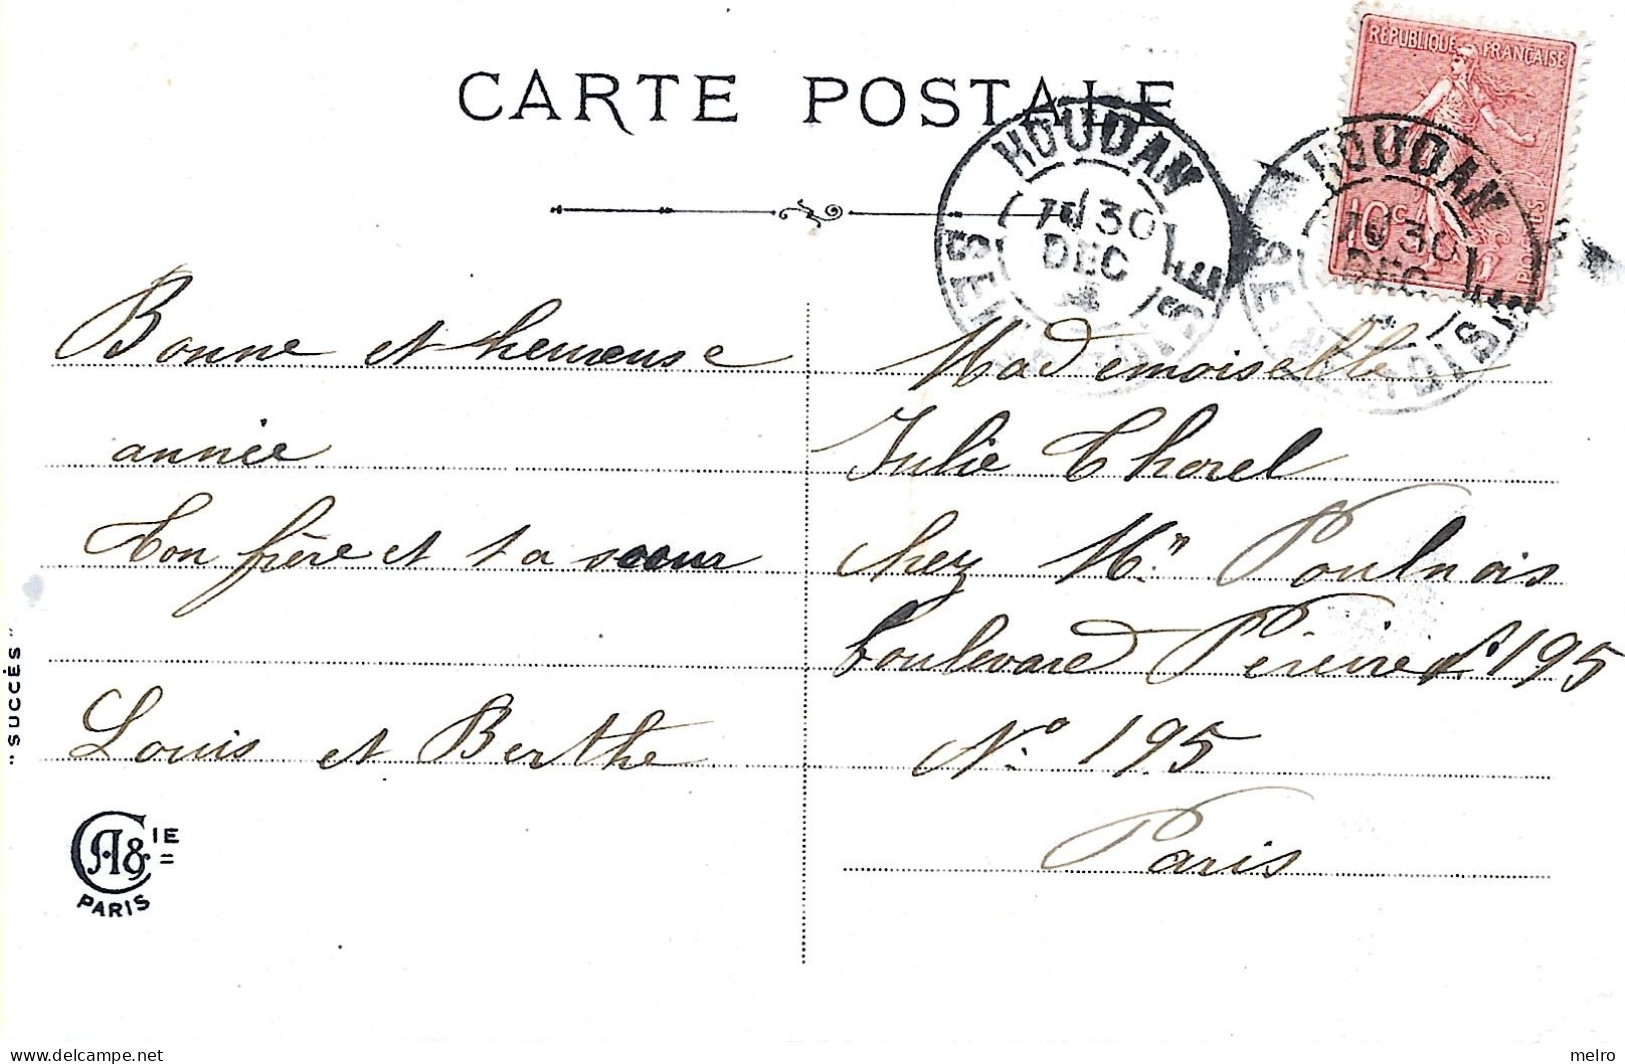 CARTE POSTALE
REPUBLIQUE FRANÇAISE
10c
POSTES
HOUDAN
30
DEC
SEINE-ET-OISE
HOUDAN
30
DEC
SEINE-ET-OISE
Bonne et heureuse
année
Ton frère et ta sœur
Louis et Berthe
Mademoiselle
Julie Thorel
chez Mr Poulnois
boulevard Péreire 195
N° 195
Paris
"SUCCÈS"
CA & IE
PARIS
melro